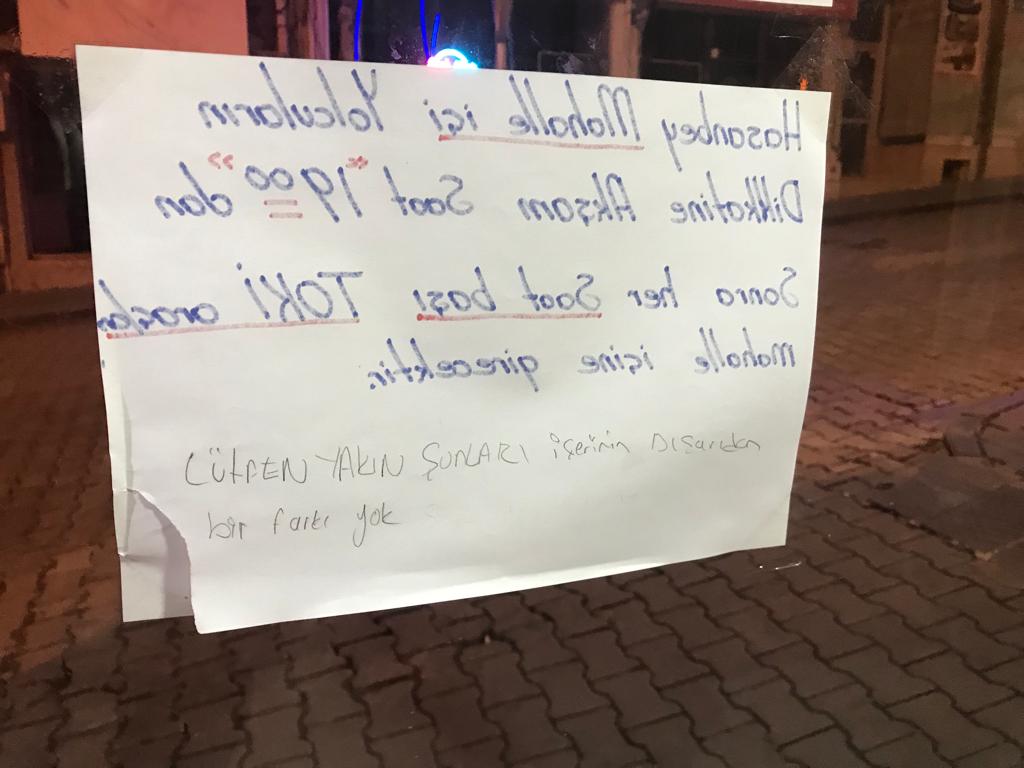 Hasanbey Mahalle içi Yolcuların
Dikkatine Akşam Saat "19 00" dan
Sonra her Saat başı TOKİ araçları
Mahalle içine girecektir.
LÜTFEN YAKIN ŞUNLARI içerinin DIŞARıdan
bir farkı yok